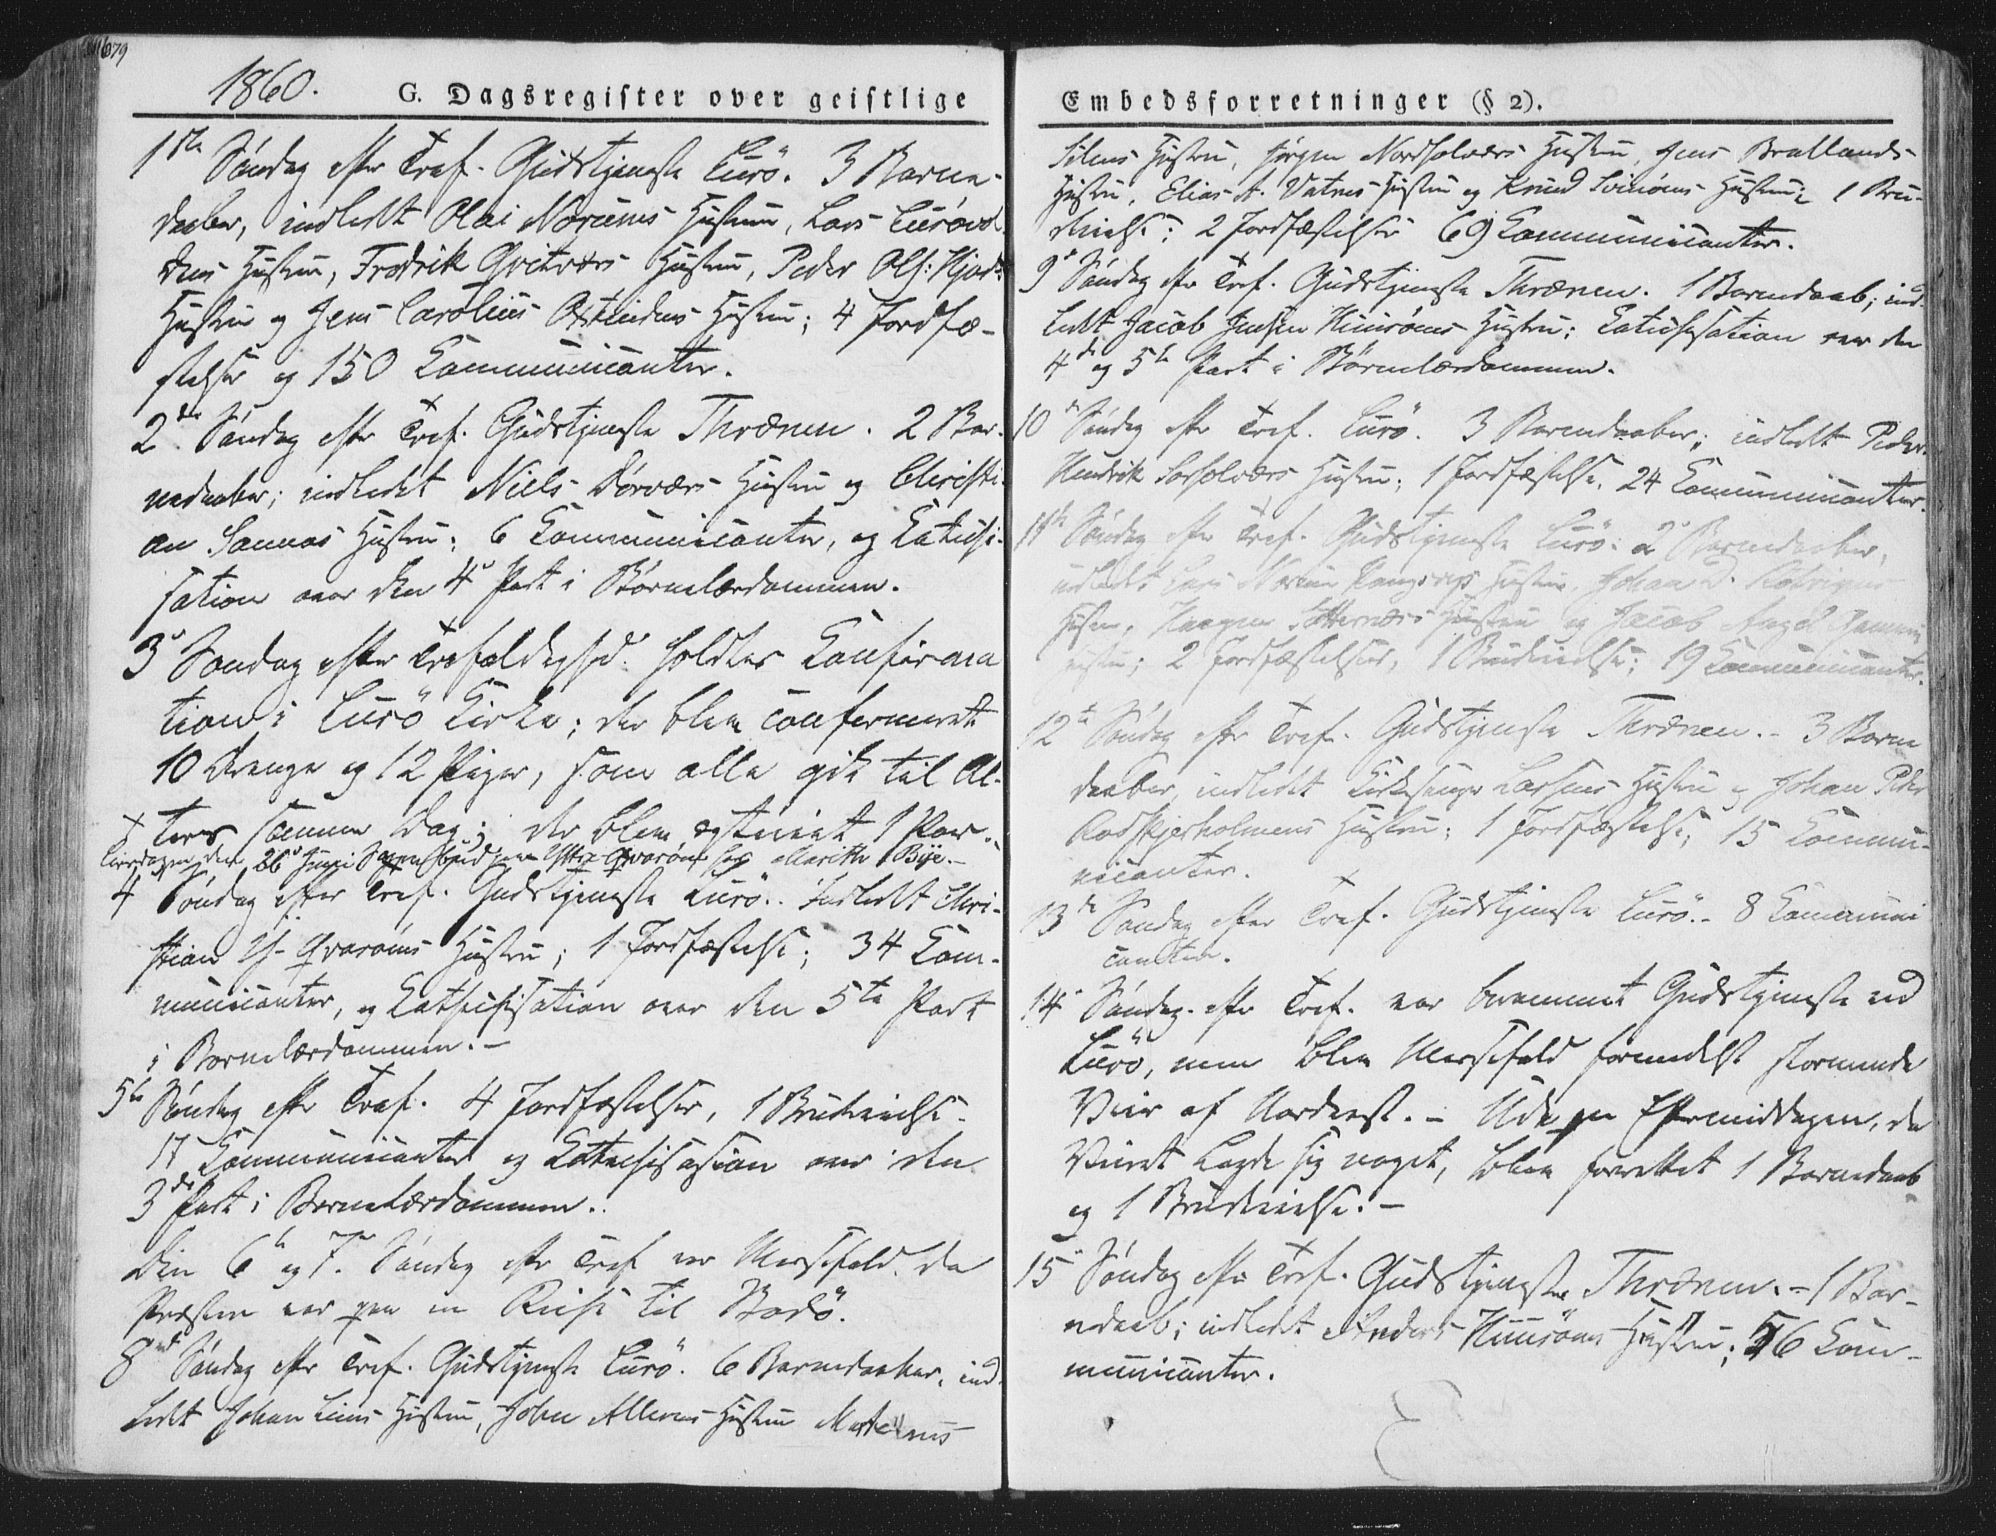 679
1860. G. Dagsregister over geistlige
1ste Søndag efter Tref. Gudstjeneste Lurö. 3 Barne-
daaber, indledt Olai Norums Hustrue, Lars Lurövol-
dens Hustrue, Fredrik Qvitværs Hustrue, Peder Ols: Hjarts
Hustrue og Jens Carolius Hustrue; 4 Jordfæ-
stelser og 150 Communicanter.
2den Søndag efter Tref. Gudstjeneste Thrænen. 2 Bar-
nedaaber; indledet Niels Dørværs Hustru og Christi-
an Sannas Hustru; 6 Communicanter, og Catechi-
sation over den 4de Part i Børnelærdommen.
3de Søndag efter Trefoldighed. holdtes Confirma
tion i Lurö Kirke; der blev confermerede
10 Drenge og 12 Piger, som alle gik til Al-
ters samme Dag; der blev ægteviet 1 Par.
Løverdagen den 26de Juni Sognebud paa Yttre Qvarøen hos Marithe Bye.-
4 Søndag efter Tref. Gudstjeneste Lurö. Indledt Chri-
stian Y. Qvarøens Hustru; 1 Jordfæstelse; 34 Com-
municanter, og Catechisation over den 5te Part
i Børnelærdommen.-
5te Søndag efter Tref. 4 Jordfæstelser, 1 Brudevielse.
17 Communicanter og Catechisasion over den
3die Part i Børnelærdommen.
Den 6te og 7de Søndag efter Tref var Messefald, da
Præsten var paa en Reise til Bodö.
8nde Søndag efter Tref. Gudstjeneste Lurö. 6 Barnedaaber, ind-
ledt Johan Hustru, John Hustru Martinus
Embedsforretninger (§ 2).
Hustru, Jørgen Nordsolværs Hustru, Jens Brallands
Hustru, Elias A. Vatnes Hustru og Knud Hustru; 1 Bru-
devielse; 2 Jordfæstelser 69 Communicanter.
9de Søndag efter Tref. Gudstjeneste Thrænen. 1 Barnedaab; ind-
ledt Jacob Jensen Husøens Hustru; Catechisation over den
4de og 5te Part i Børnelærdommen.
10de Søndag efter Tref. Lurö. 3 Barnedaaber; indledt Peder
Hendrik Sørsolværs Hustru; 1 Jordfæstelse. 24 Communicanter.
11te Søndag efter Tref. Gudstjeneste Lurö. 2 Barnedaaber,
indledt Lars Hustru, Johan D.
Hustru, Haagen Hustru og Jacob
Hustru; 2 Jordfæstelser, 1 Brudevielse; 19 Communicanter.
12te Søndag efter Tref. Gudstjeneste Thrænen.- 3 Barne
daaber, indledt Kirkesanger Larsens Hustru og Johan Peder
Rødskjærholmens Hustru; 1 Jordfæstelse; 15 Commu-
nicanter.
13de Søndag efter Tref. Gudstjeneste Lurö.- 8 Communi
canter.
14 Søndag efter Tref. var berammet Gudstjeneste ved
Lurö, men blev Messefald formedelst stormende
Veir af Nordvest.- Ude paa Eftermiddagen, da
Veiret lagde sig noget, blev forrettet 1 Barnedaab
og 1 Brudevielse.-
15 Søndag efter Tref. Gudstjeneste Thrænen.- 1 Bar-
nedaab; indledt Anders Husøens Hustru; 56 Com-
municanter.